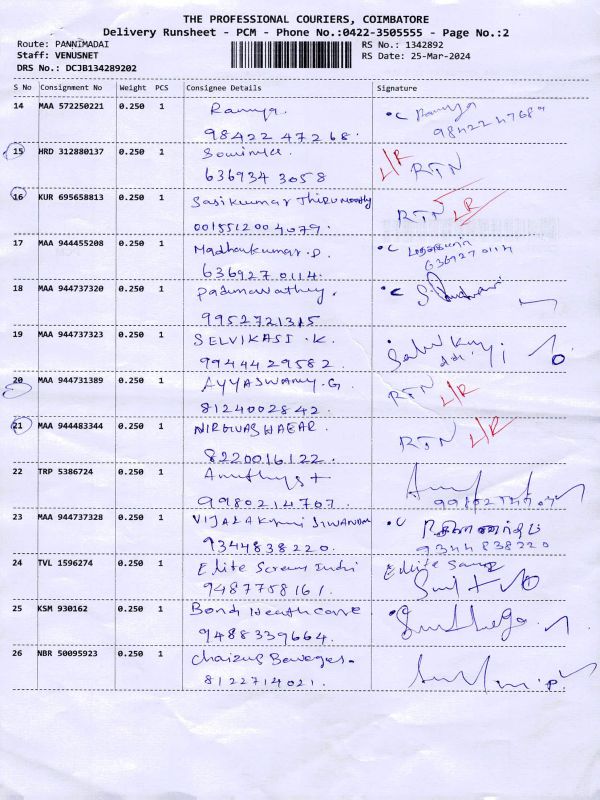 THE PROFESSIONAL COURIERS, COIMBATORE
Delivery Runsheet - PCM - Phone No.:0422-3505555 - Page No.:2
Route: PANNIMADAI
Staff: VENUSNET
DRS No.: DCJB134289202
RS No.: 1342892
RS Date: 25-Mar-2024
S No Consignment No Weight PCS Consignee Details Signature
14 MAA 572250221 0.250 1 Ramya.
98422 47268.
15 HRD 312880137 0.250 1 L/R RTN
636934 3058
16 KUR 695658813 0.250 1 Sasikumar Thirumoorthy RTN L/R
001551200 4079.
17 MAA 944455208 0.250 1 Madhankumar.D.
636927 0114. 636927 0114
18 MAA 944737320 0.250 1 Padmavathy.
9952721315
19 MAA 944737323 0.250 1 SELVIKASI.K.
9944429582
20 MAA 944731389 0.250 1 AYYASWAMY.G. RTN L/R
8124002842
21 MAA 944483344 0.250 1 RTN L/R
8220016122.
22 TRP 5386724 0.250 1 Amethyst
9980214707.
23 MAA 944737328 0.250 1 VIJALAKSHMI
9344838220. 9344838220
24 TVL 1596274 0.250 1 Elite Screen Indri
9487758161.
25 KSM 930162 0.250 1 Bond Heathcare
9488339664.
26 NBR 50095923 0.250 1
8122714021.